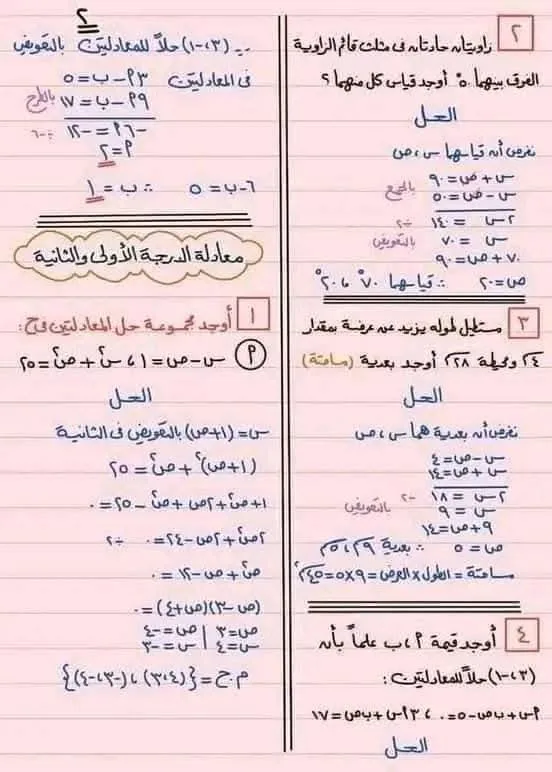 ٢
٢ زاويتان حادتان فى مثلث قائم الزاوية
الفرق بينهما ٥٠° أوجد قياس كل منهما ؟
الحل
نفرض أن قياسهما س ، ص
س + ص = ٩٠
س - ص = ٥٠ بالجمع
٢س = ١٤٠ ÷٢
س = ٧٠ بالتعويض
٧٠ + ص = ٩٠
ص = ٢٠ ∴ قياسهما ٧٠° ، ٢٠°
٣ مستطيل طوله يزيد عن عرضه بمقدار
٤سم ومحيطه ٢٨سم أوجد بعديه (مساحته)
الحل
نفرض أن بعديه هما س ، ص
س - ص = ٤
س + ص = ١٤
٢س = ١٨ ÷٢
س = ٩ بالتعويض
٩ + ص = ١٤
ص = ٥ ∴ بعديه ٩سم ، ٥سم
مساحته = الطول × العرض = ٩ × ٥ = ٤٥سم٢
٤ أوجد قيمة أ ، ب علماً بأن
(٣،-١) حلاً للمعادلتين :
أس + ب ص - ٥ = ٠ ، ٣أس + ب ص = ١٧
الحل
∵ (٣،-١) حلاً للمعادلتين بالتعويض
فى المعادلتين ٣أ - ب = ٥
٩أ - ب = ١٧ بالطرح
-٦أ = -١٢ ÷-٦
أ = ٢
٦ - ب = ٥ ∴ ب = ١
معادلة الدرجة الأولى والثانية
١ أوجد مجموعة حل المعادلتين فى ح :
أ س - ص = ١ ، س٢ + ص٢ = ٢٥
الحل
س = (١+ص) بالتعويض فى الثانية
(١+ص)٢ + ص٢ = ٢٥
١ + ص٢ + ٢ص + ص٢ - ٢٥ = ٠
٢ص٢ + ٢ص - ٢٤ = ٠ ÷٢
ص٢ + ص - ١٢ = ٠
(ص-٣)(ص+٤) = ٠
ص = ٣ | ص = -٤
س = ٤ | س = -٣
م.ح = {(٤،٣) ، (-٣،-٤)}